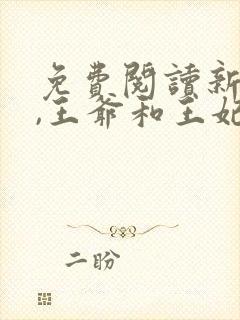 免費閱讀新
,王爺和王妃
二盼